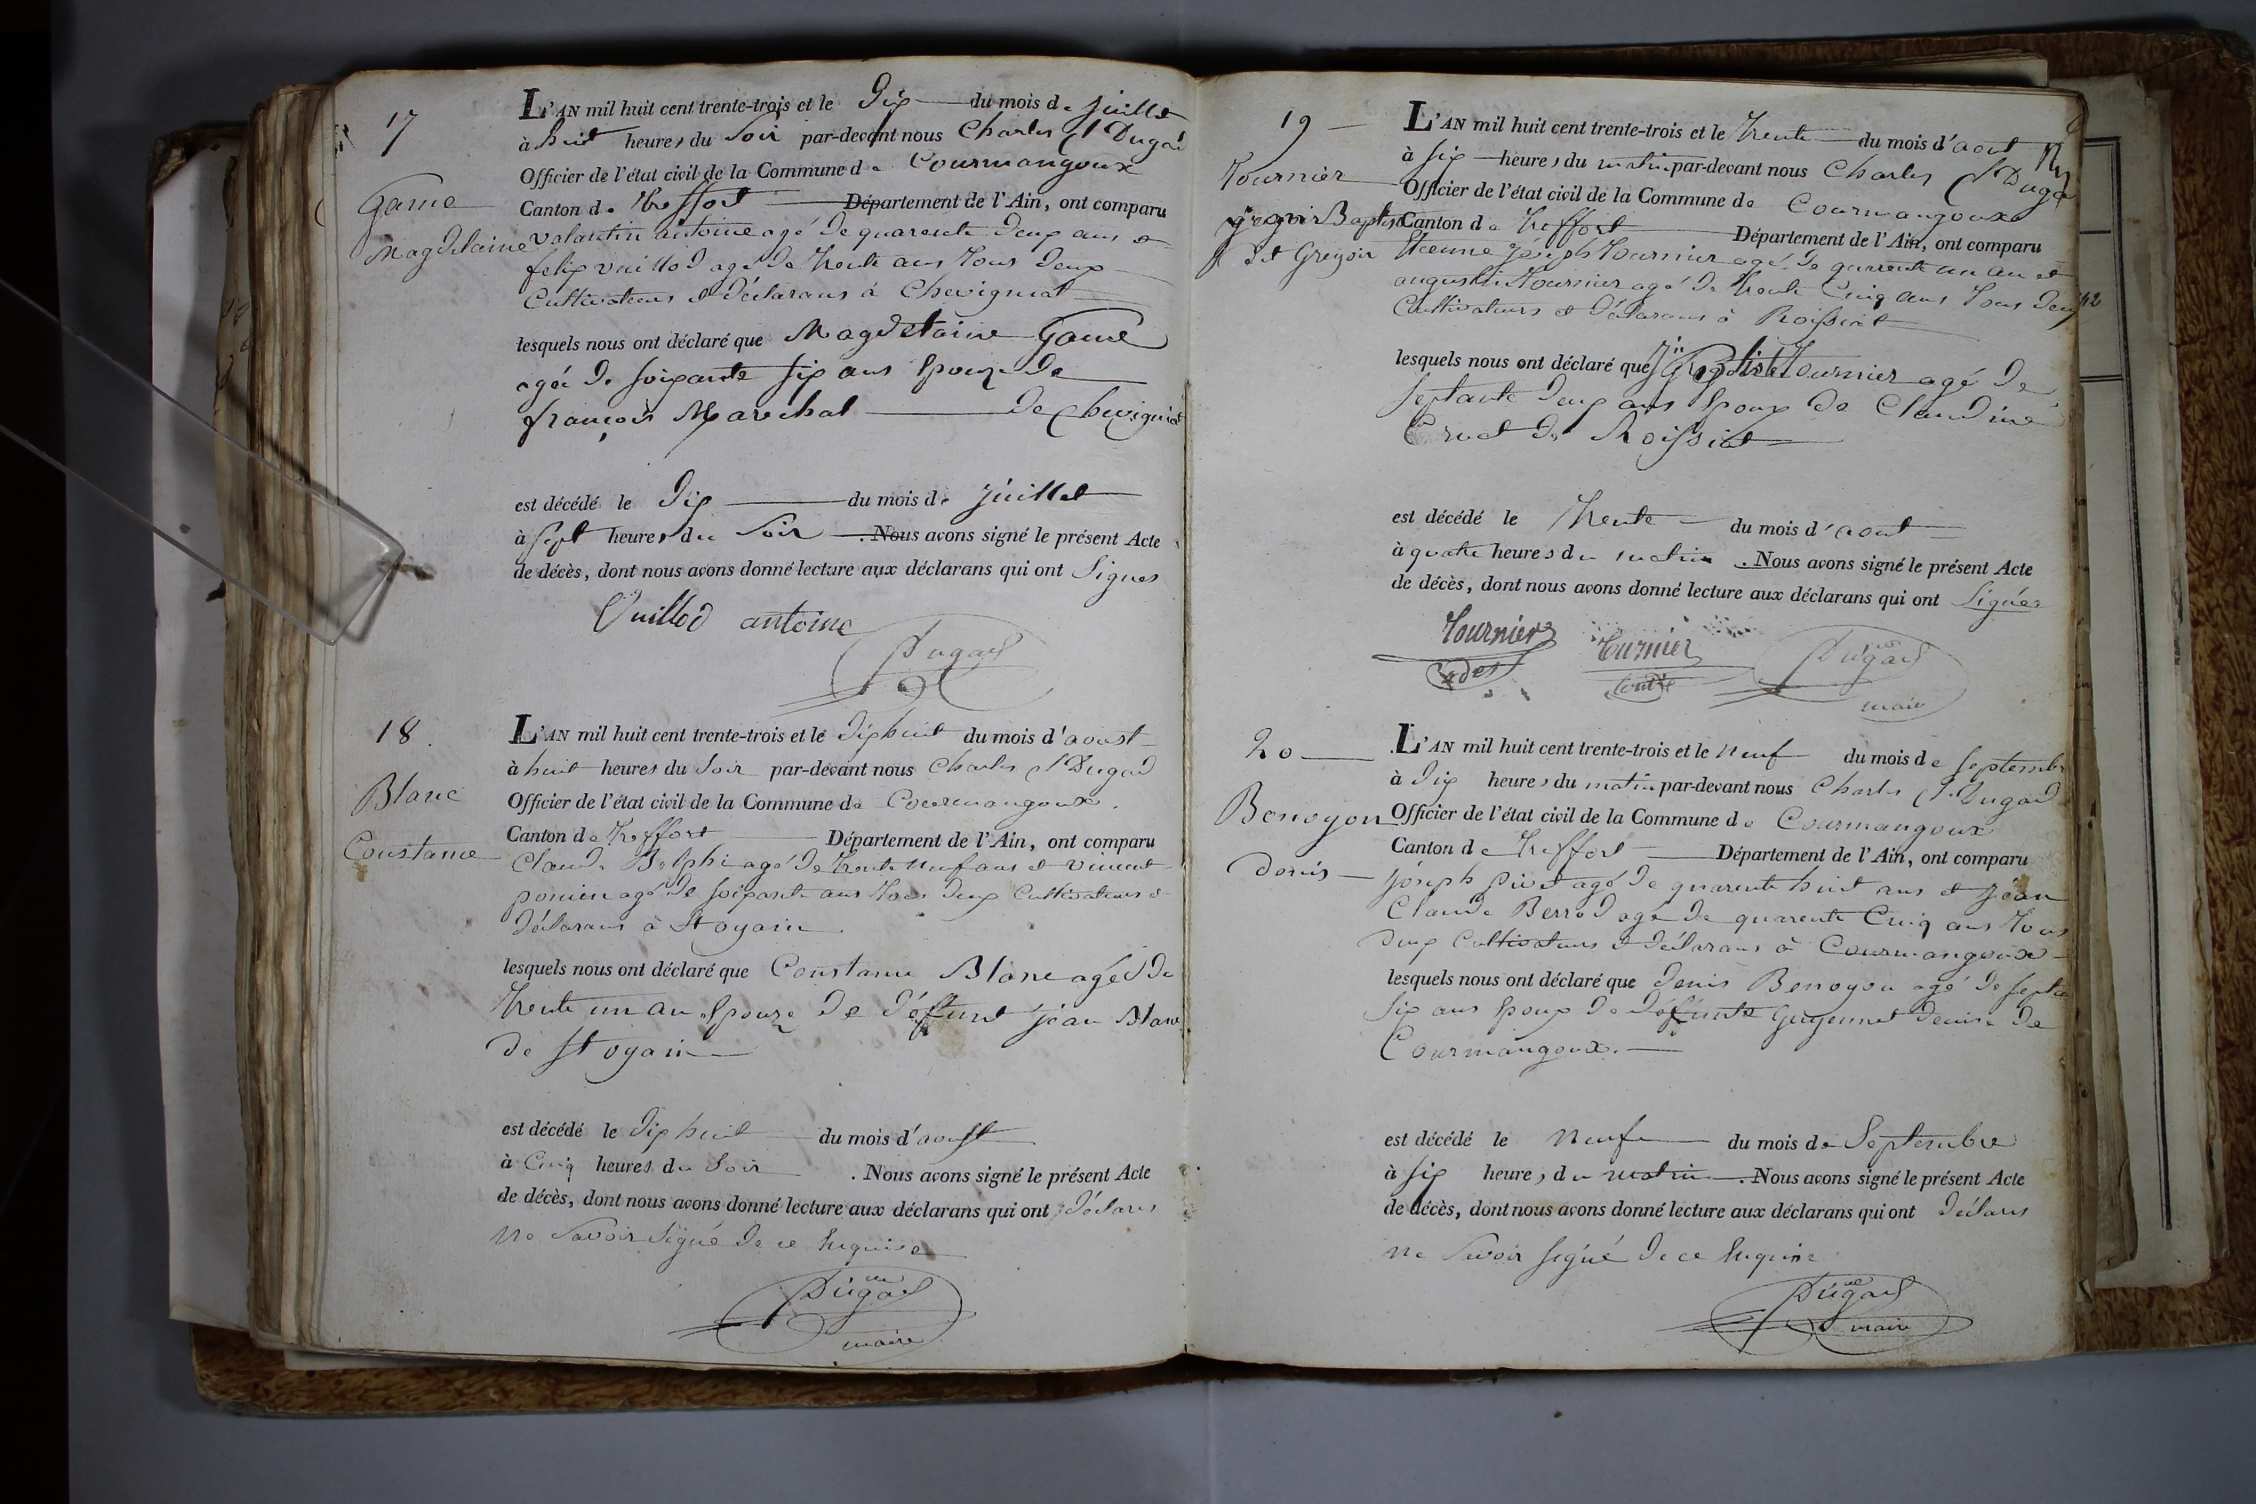 17
Game
Magdelaine
L'AN mil huit cent trente-trois et le Dix du mois de juillet
à huit heures du Soir par-devant nous Charles Dugad
Officier de l'état civil de la Commune de Courmangoux
Canton de treffort Département de l'Ain, ont comparu
valantin antoine agé de quarente deux ans et
felix vuillod agé de trente ans tous deux
Cultivateurs et déclarans à Chevigniat
lesquels nous ont déclaré que Magdelaine Game
agée de soixante six ans Epouze de
françois Marechal de Chevigniat
est décédé le dix du mois de juillet
à sept heures du Soir . Nous avons signé le présent Acte
de décès, dont nous avons donné lecture aux déclarans qui ont Signes
Vuillod antoine
Dugad
18
Blanc
Constance
L'AN mil huit cent trente-trois et le dix huit du mois d'aoust
à huit heures du Soir par-devant nous Charles Dugad
Officier de l'état civil de la Commune de Courmangoux.
Canton de treffort Département de l'Ain, ont comparu
Claude agé de trente neuf ans et vincent
agé de soixante ans tous deux Cultivateurs et
déclarans à St oyain
lesquels nous ont déclaré que Constance Blanc agée de
trente un an Epouze de défunt jean Blanc
de St oyain
est décédé le dix huit du mois d'aoust
à Cinq heures du Soir . Nous avons signé le présent Acte
de décès, dont nous avons donné lecture aux déclarans qui ont déclarés
ne Savoir Signé de ce Enquise
Dugad
maire
19
Tournier
Baptiste
dit Gregoir
L'AN mil huit cent trente-trois et le trente du mois d'aout
à six heures du matin par-devant nous Charles Dugad
Officier de l'état civil de la Commune de Courmangoux
Canton de treffort Département de l'Ain, ont comparu
Etienne joseph tournier agé de quarente un an et
augustin tournier agé de trente Cinq ans tous deux
Cultivateurs et déclarans à Roissiat
lesquels nous ont déclaré que Jn Baptiste Tournier agé de
septante deux ans Epoux de Claudine
de Roissiat
est décédé le trente du mois d'aout
à quatre heures du matin . Nous avons signé le présent Acte
de décès, dont nous avons donné lecture aux déclarans qui ont Signés
Tournier
Tournier
Dugad
maire
20
Benoyon
denis
L'AN mil huit cent trente-trois et le neuf du mois de septembre
à dix heures du matin par-devant nous Charles Dugad
Officier de l'état civil de la Commune de Courmangoux
Canton de treffort Département de l'Ain, ont comparu
joseph pivet agé de quarente huit ans et jean
Claude Berrod agé de quarente Cinq ans tous
deux Cultivateurs et déclarans à Courmangoux
lesquels nous ont déclaré que denis Benoyon agé de
six ans Epoux de défunte Guyennet denise de
Courmangoux.
est décédé le neuf du mois de Septembre
à six heures du matin . Nous avons signé le présent Acte
de décès, dont nous avons donné lecture aux déclarans qui ont déclarés
ne Savoir signé de ce Enquise
Dugad
maire